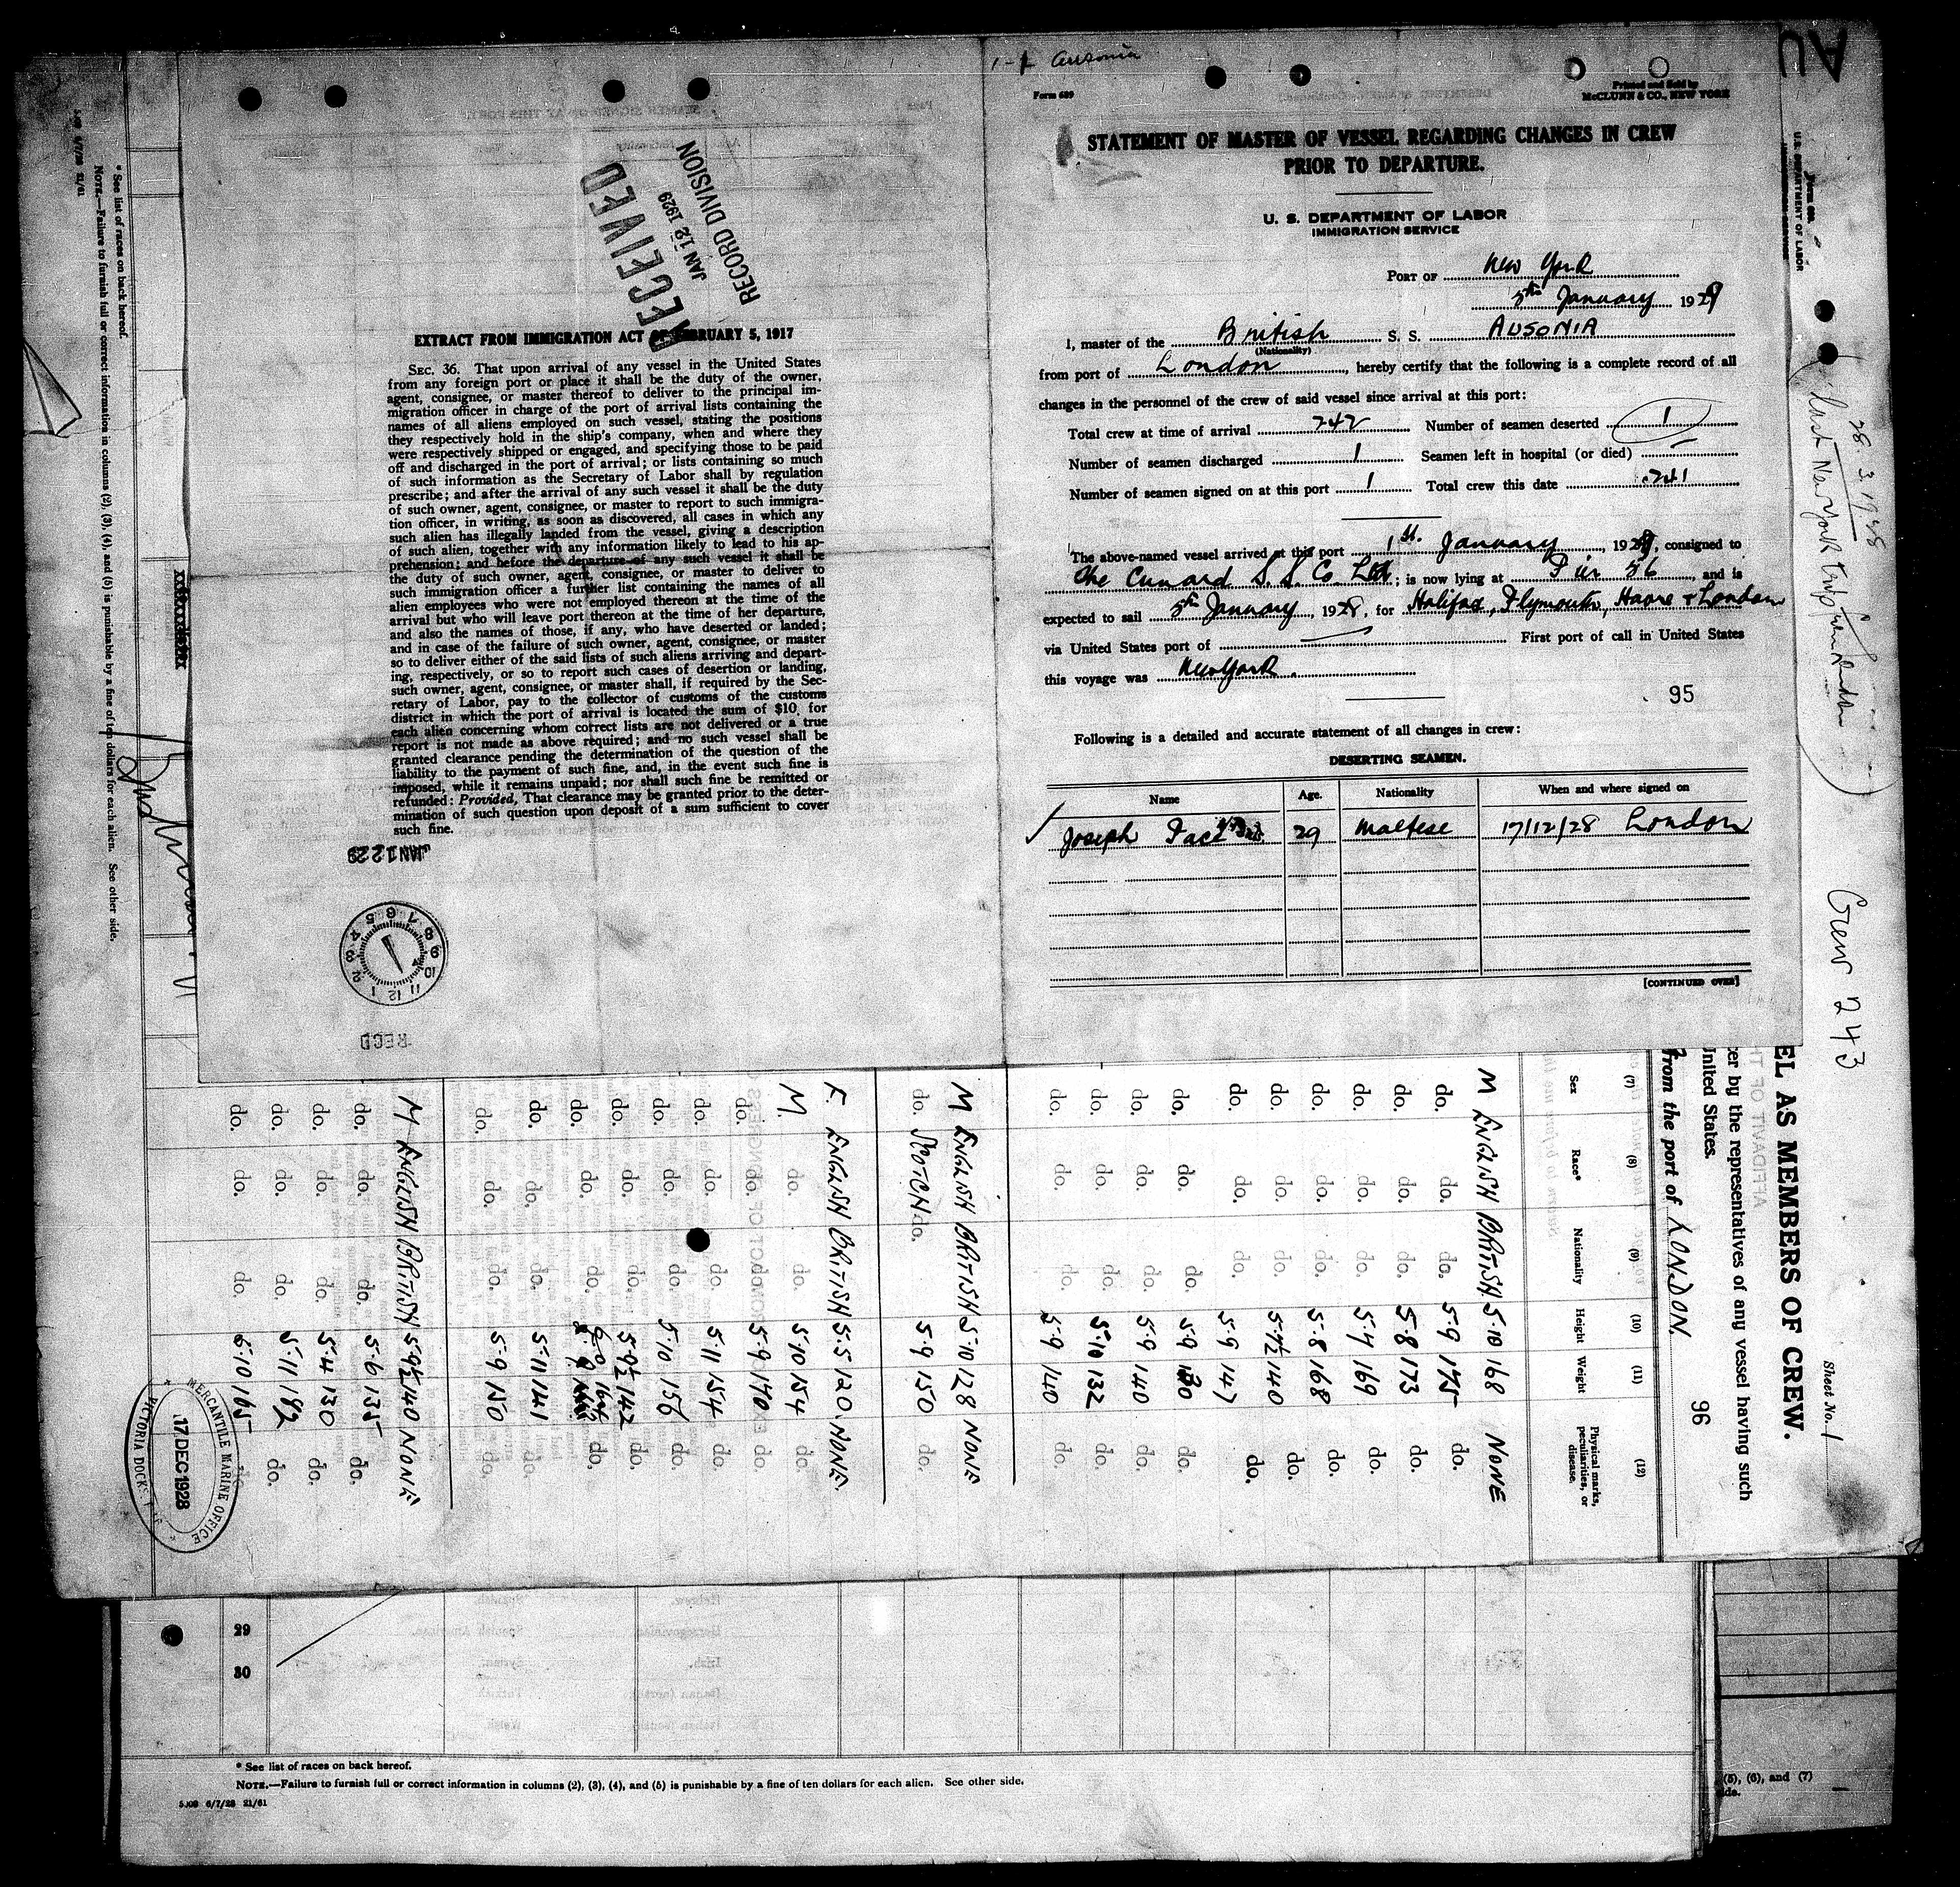 1-1 Ausonia
Form 689
Printed and Sold by
McCLUNN & CO., NEW YORK
STATEMENT OF MASTER OF VESSEL REGARDING CHANGES IN CREW
PRIOR TO DEPARTURE.
U. S. DEPARTMENT OF LABOR
IMMIGRATION SERVICE
PORT OF New York
5th January 1929
I, master of the British S. S. AUSONIA
(Nationality)
from port of London, hereby certify that the following is a complete record of all
changes in the personnel of the crew of said vessel since arrival at this port:
Total crew at time of arrival 242 Number of seamen deserted 1
Number of seamen discharged 1 Seamen left in hospital (or died) —
Number of seamen signed on at this port 1 Total crew this date 241
The above-named vessel arrived at this port 1st. January 1929, consigned to
The Cunard S. S. Co Ltd; is now lying at Pier 56, and is
expected to sail 5th January 1928, for Halifax, Plymouth, Havre & London
via United States port of First port of call in United States
this voyage was New York.
95
Following is a detailed and accurate statement of all changes in crew:
DESERTING SEAMEN.
Name Age. Nationality When and where signed on
Joseph 29 Maltese 17/12/28 London
[CONTINUED OVER]
RECEIVED
JAN 12 1929
RECORD DIVISION
EXTRACT FROM IMMIGRATION ACT OF FEBRUARY 5, 1917
SEC. 36. That upon arrival of any vessel in the United States
from any foreign port or place it shall be the duty of the owner,
agent, consignee, or master thereof to deliver to the principal im-
migration officer in charge of the port of arrival lists containing the
names of all aliens employed on such vessel, stating the positions
they respectively hold in the ship's company, when and where they
were respectively shipped or engaged, and specifying those to be paid
off and discharged in the port of arrival; or lists containing so much
of such information as the Secretary of Labor shall by regulation
prescribe; and after the arrival of any such vessel it shall be the duty
of such owner, agent, consignee, or master to report to such immigra-
tion officer, in writing, as soon as discovered, all cases in which any
such alien has illegally landed from the vessel, giving a description
of such alien, together with any information likely to lead to his ap-
prehension; and before the departure of any such vessel it shall be
the duty of such owner, agent, consignee, or master to deliver to
such immigration officer a further list containing the names of all
alien employees who were not employed thereon at the time of the
arrival but who will leave port thereon at the time of her departure,
and also the names of those, if any, who have deserted or landed;
and in case of the failure of such owner, agent, consignee, or master
so to deliver either of the said lists of such aliens arriving and depart-
ing, respectively, or so to report such cases of desertion or landing,
such owner, agent, consignee, or master shall, if required by the Sec-
retary of Labor, pay to the collector of customs of the customs
district in which the port of arrival is located the sum of $10 for
each alien concerning whom correct lists are not delivered or a true
report is not made as above required; and no such vessel shall be
granted clearance pending the determination of the question of the
liability to the payment of such fine, and, in the event such fine is
imposed, while it remains unpaid; nor shall such fine be remitted or
refunded: Provided, That clearance may be granted prior to the deter-
mination of such question upon deposit of a sum sufficient to cover
such fine.
JAN 12 29
RECD
AU
U.S. DEPARTMENT OF LABOR
28.3.1928
Last New York trip from London
Crew 243
Sheet No. 1
EL AS MEMBERS OF CREW.
cer by the representatives of any vessel having such
United States.
from the port of LONDON.
96
(7) (8) (9) (10) (11) (12)
Sex Race* Nationality Height Weight Physical marks, peculiarities, or disease.
M ENGLISH BRITISH 5-10 168 NONE
do. do. do. 5-9 175 do.
do. do. do. 5-8 173 do.
do. do. do. 5-7 169 do.
do. do. do. 5-8 168 do.
do. do. do. 5-7½ 140 do.
do. do. do. 5-9 147 do.
do. do. do. 5-9 do.
do. do. do. 5-9 140 do.
do. do. do. 5-10 132 do.
do. do. do. 5-9 140 do.
M ENGLISH BRITISH 5-10 128 NONE
do. SCOTCH do. 5-9 150 do.
F. ENGLISH BRITISH 5-5 120 NONE.
M. do. do. 5-10 154 do.
do. 5-9 170 do.
do. do. do. 5-11 154 do.
do. do. do. 5-10 156 do.
do. do. do. 5-9½ 142 do.
do. do. do. 6-0 do.
do. do. do. 5-11 141 do.
do. do. do. 5-9 150 do.
M ENGLISH BRITISH 5-9½ 140 NONE
do. do. do. 5-6 135 do.
do. do. do. 5-4 130 do.
do. do. do. 5-11 182 do.
do. do. do. 5-10 165
MERCANTILE MARINE OFFICE
17 DEC 1928
VICTORIA DOCKS
* See list of races on back hereof.
NOTE.—Failure to furnish full or correct information in columns (2), (3), (4), and (5) is punishable by a fine of ten dollars for each alien. See other side.
29
30
* See list of races on back hereof.
NOTE.—Failure to furnish full or correct information in columns (2), (3), (4), and (5) is punishable by a fine of ten dollars for each alien. See other side.
6/7/28 21/61
(5), (6), and (7)